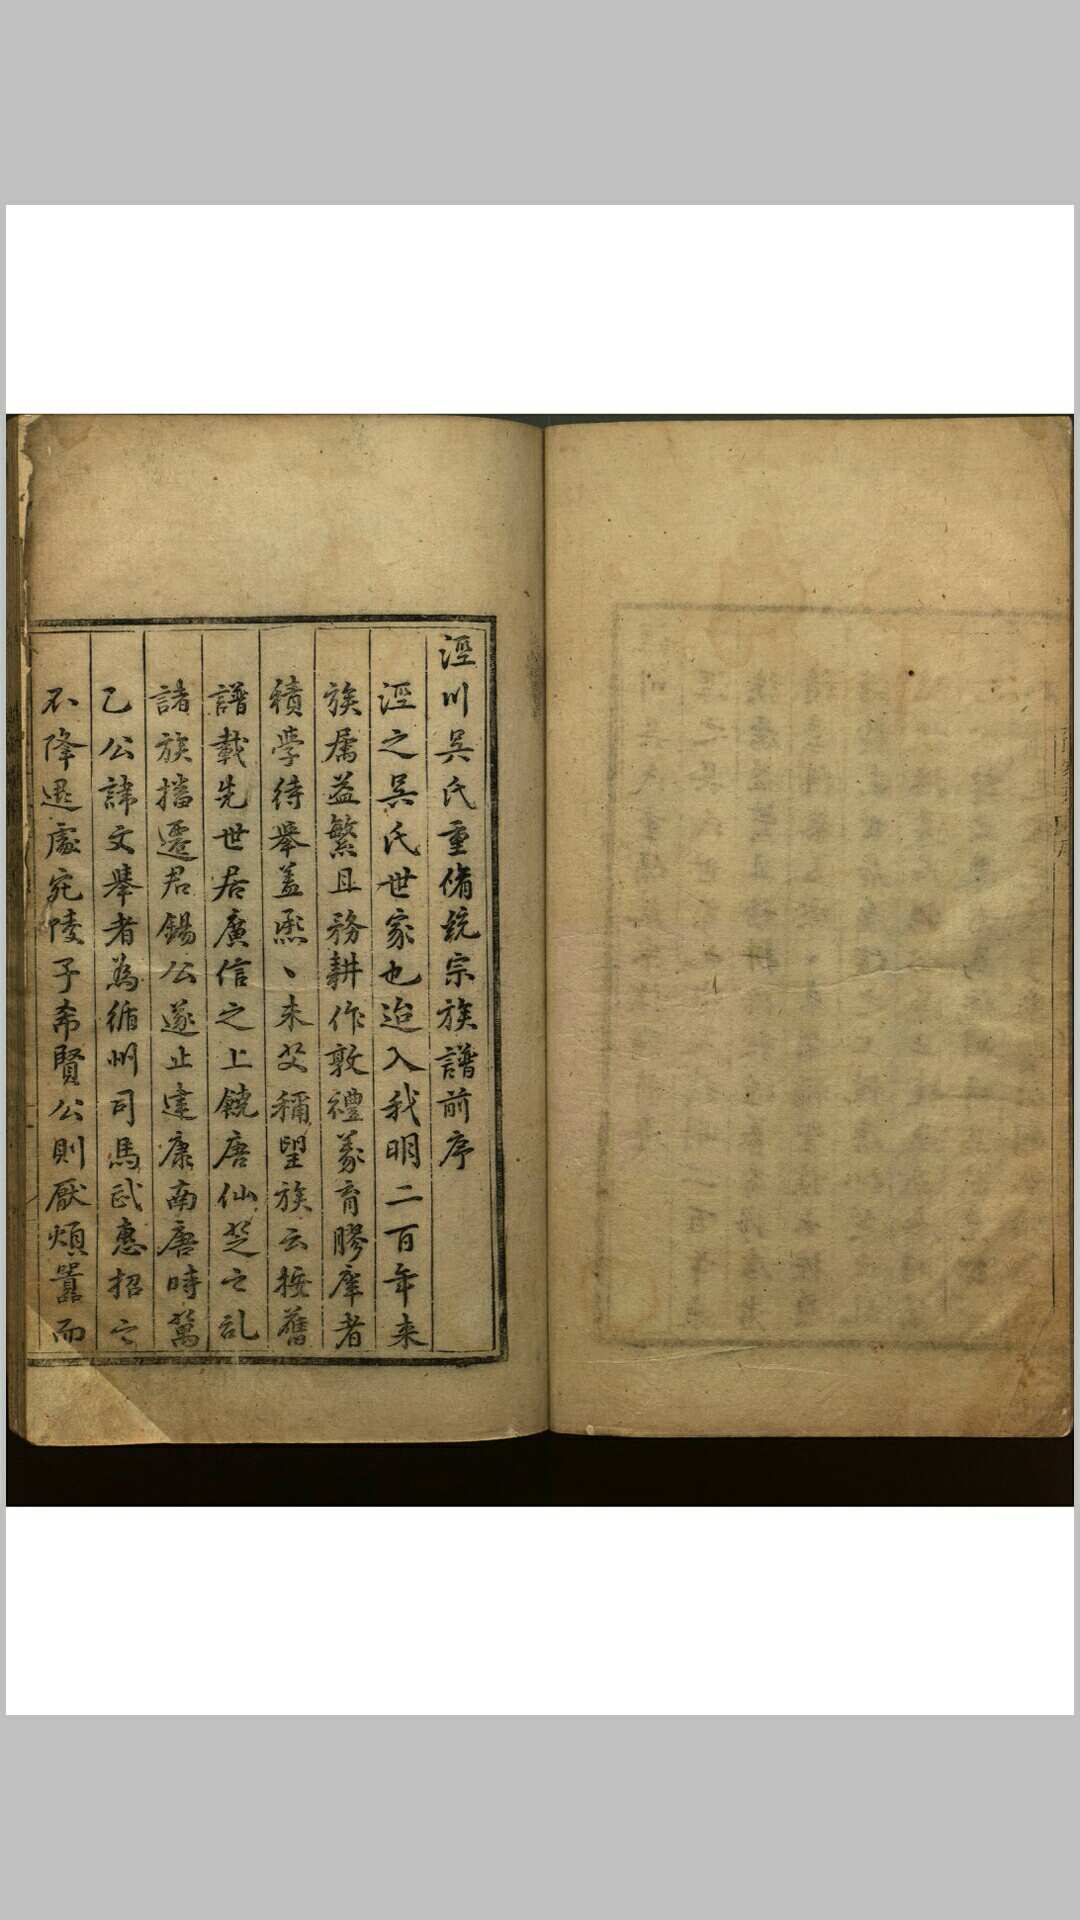 涇川吳氏重脩統宗族譜前序
涇之吳氏世家也迨入我明二百年来
族属益繁且務耕作敦禮義育膠庠者
積學待舉盖熙〻未艾稱望族云按舊
譜載先世居廣信之上饒唐仙芝之乱
諸族播遷君錫公遂止建康南唐時萬
乙公諱文舉者為循州司馬武惠招之
不降退處宛陵子希賢公則厭煩囂而